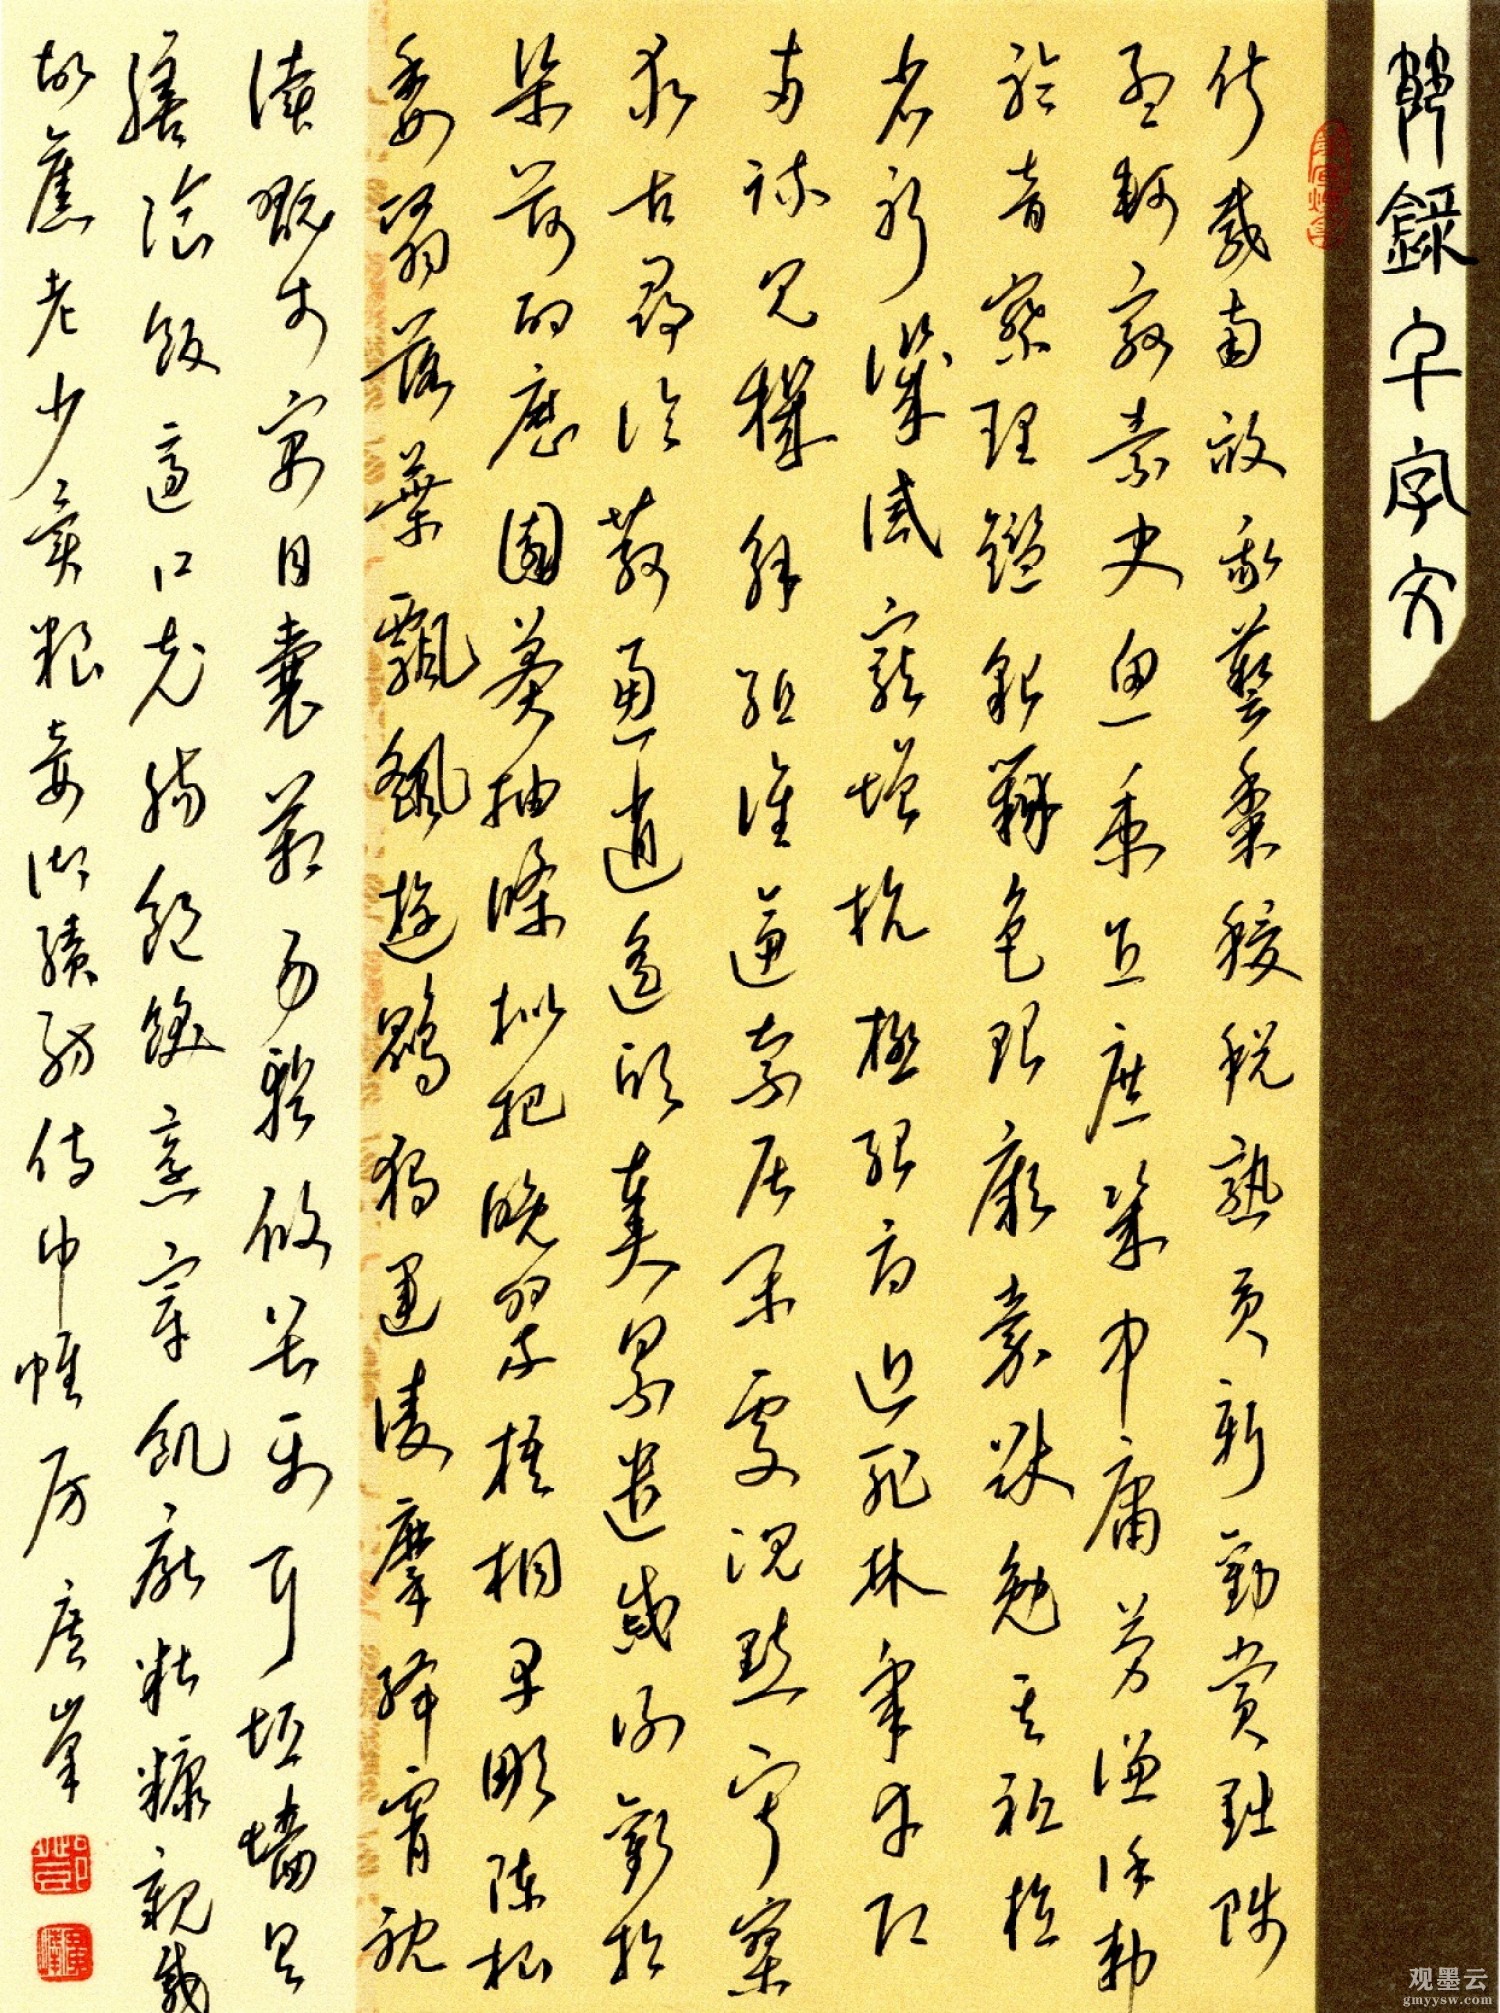 節錄千字文
俶載南畝我藝黍稷稅熟貢新勸賞黜陟
孟軻敦素史魚秉直庶幾中庸勞謙謹勑
聆音察理鑑貌辨色貽厥嘉猷勉其祗植
省躬譏誡寵增抗極殆辱近恥林皋幸即
兩疏見機解組誰逼索居閑處沉默寂寥
求古尋論散慮逍遙欣奏累遣慼謝歡招
渠荷的歷園莽抽條枇杷晚翠梧桐早彫陳根
委翳落葉飄颻遊鵾獨運凌摩絳霄耽
讀翫市寓目囊箱易輶攸畏屬耳垣牆具
膳飡飯適口充腸飽飫烹宰飢厭糟糠親戚
故舊老少異糧妾御績紡侍巾帷房 峯
观墨云
gmyysw.com